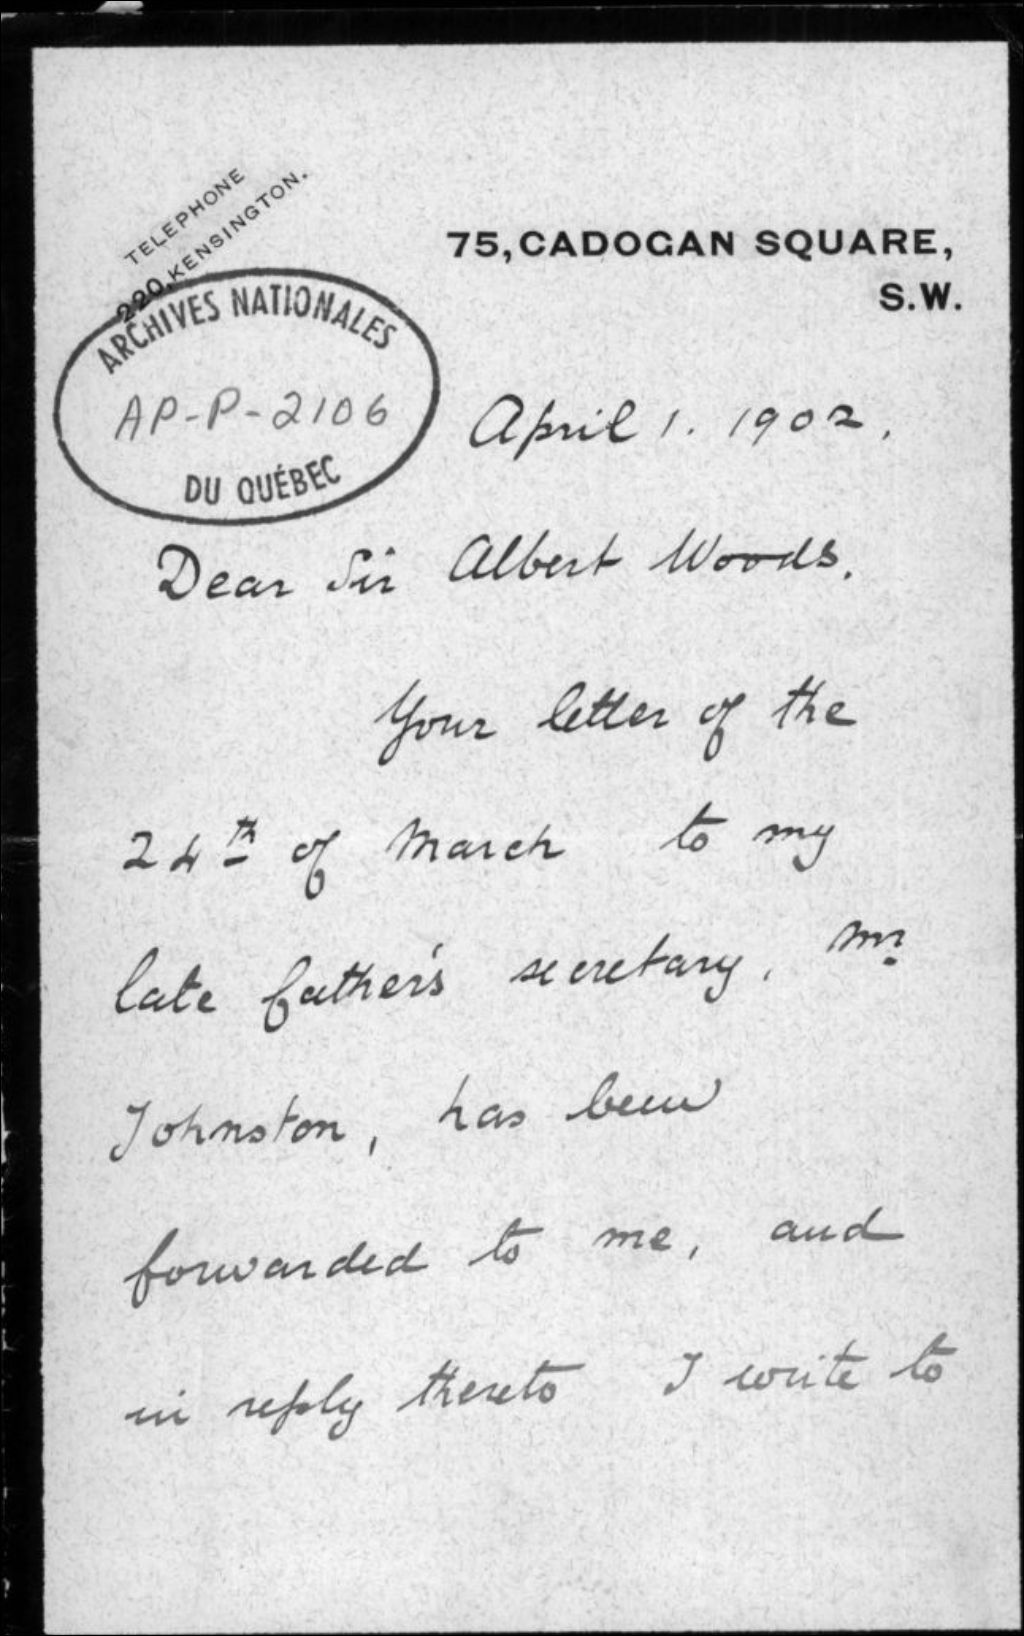 TELEPHONE
220, KENSINGTON.
75, CADOGAN SQUARE,
S.W.
ARCHIVES NATIONALES
AP-P-2106
DU QUÉBEC
April 1. 1902.
Dear Sir Albert Woods.
Your letter of the
24th of March to my
late father's secretary, Mr
Johnston, has been
forwarded to me, and
in reply thereto I write to